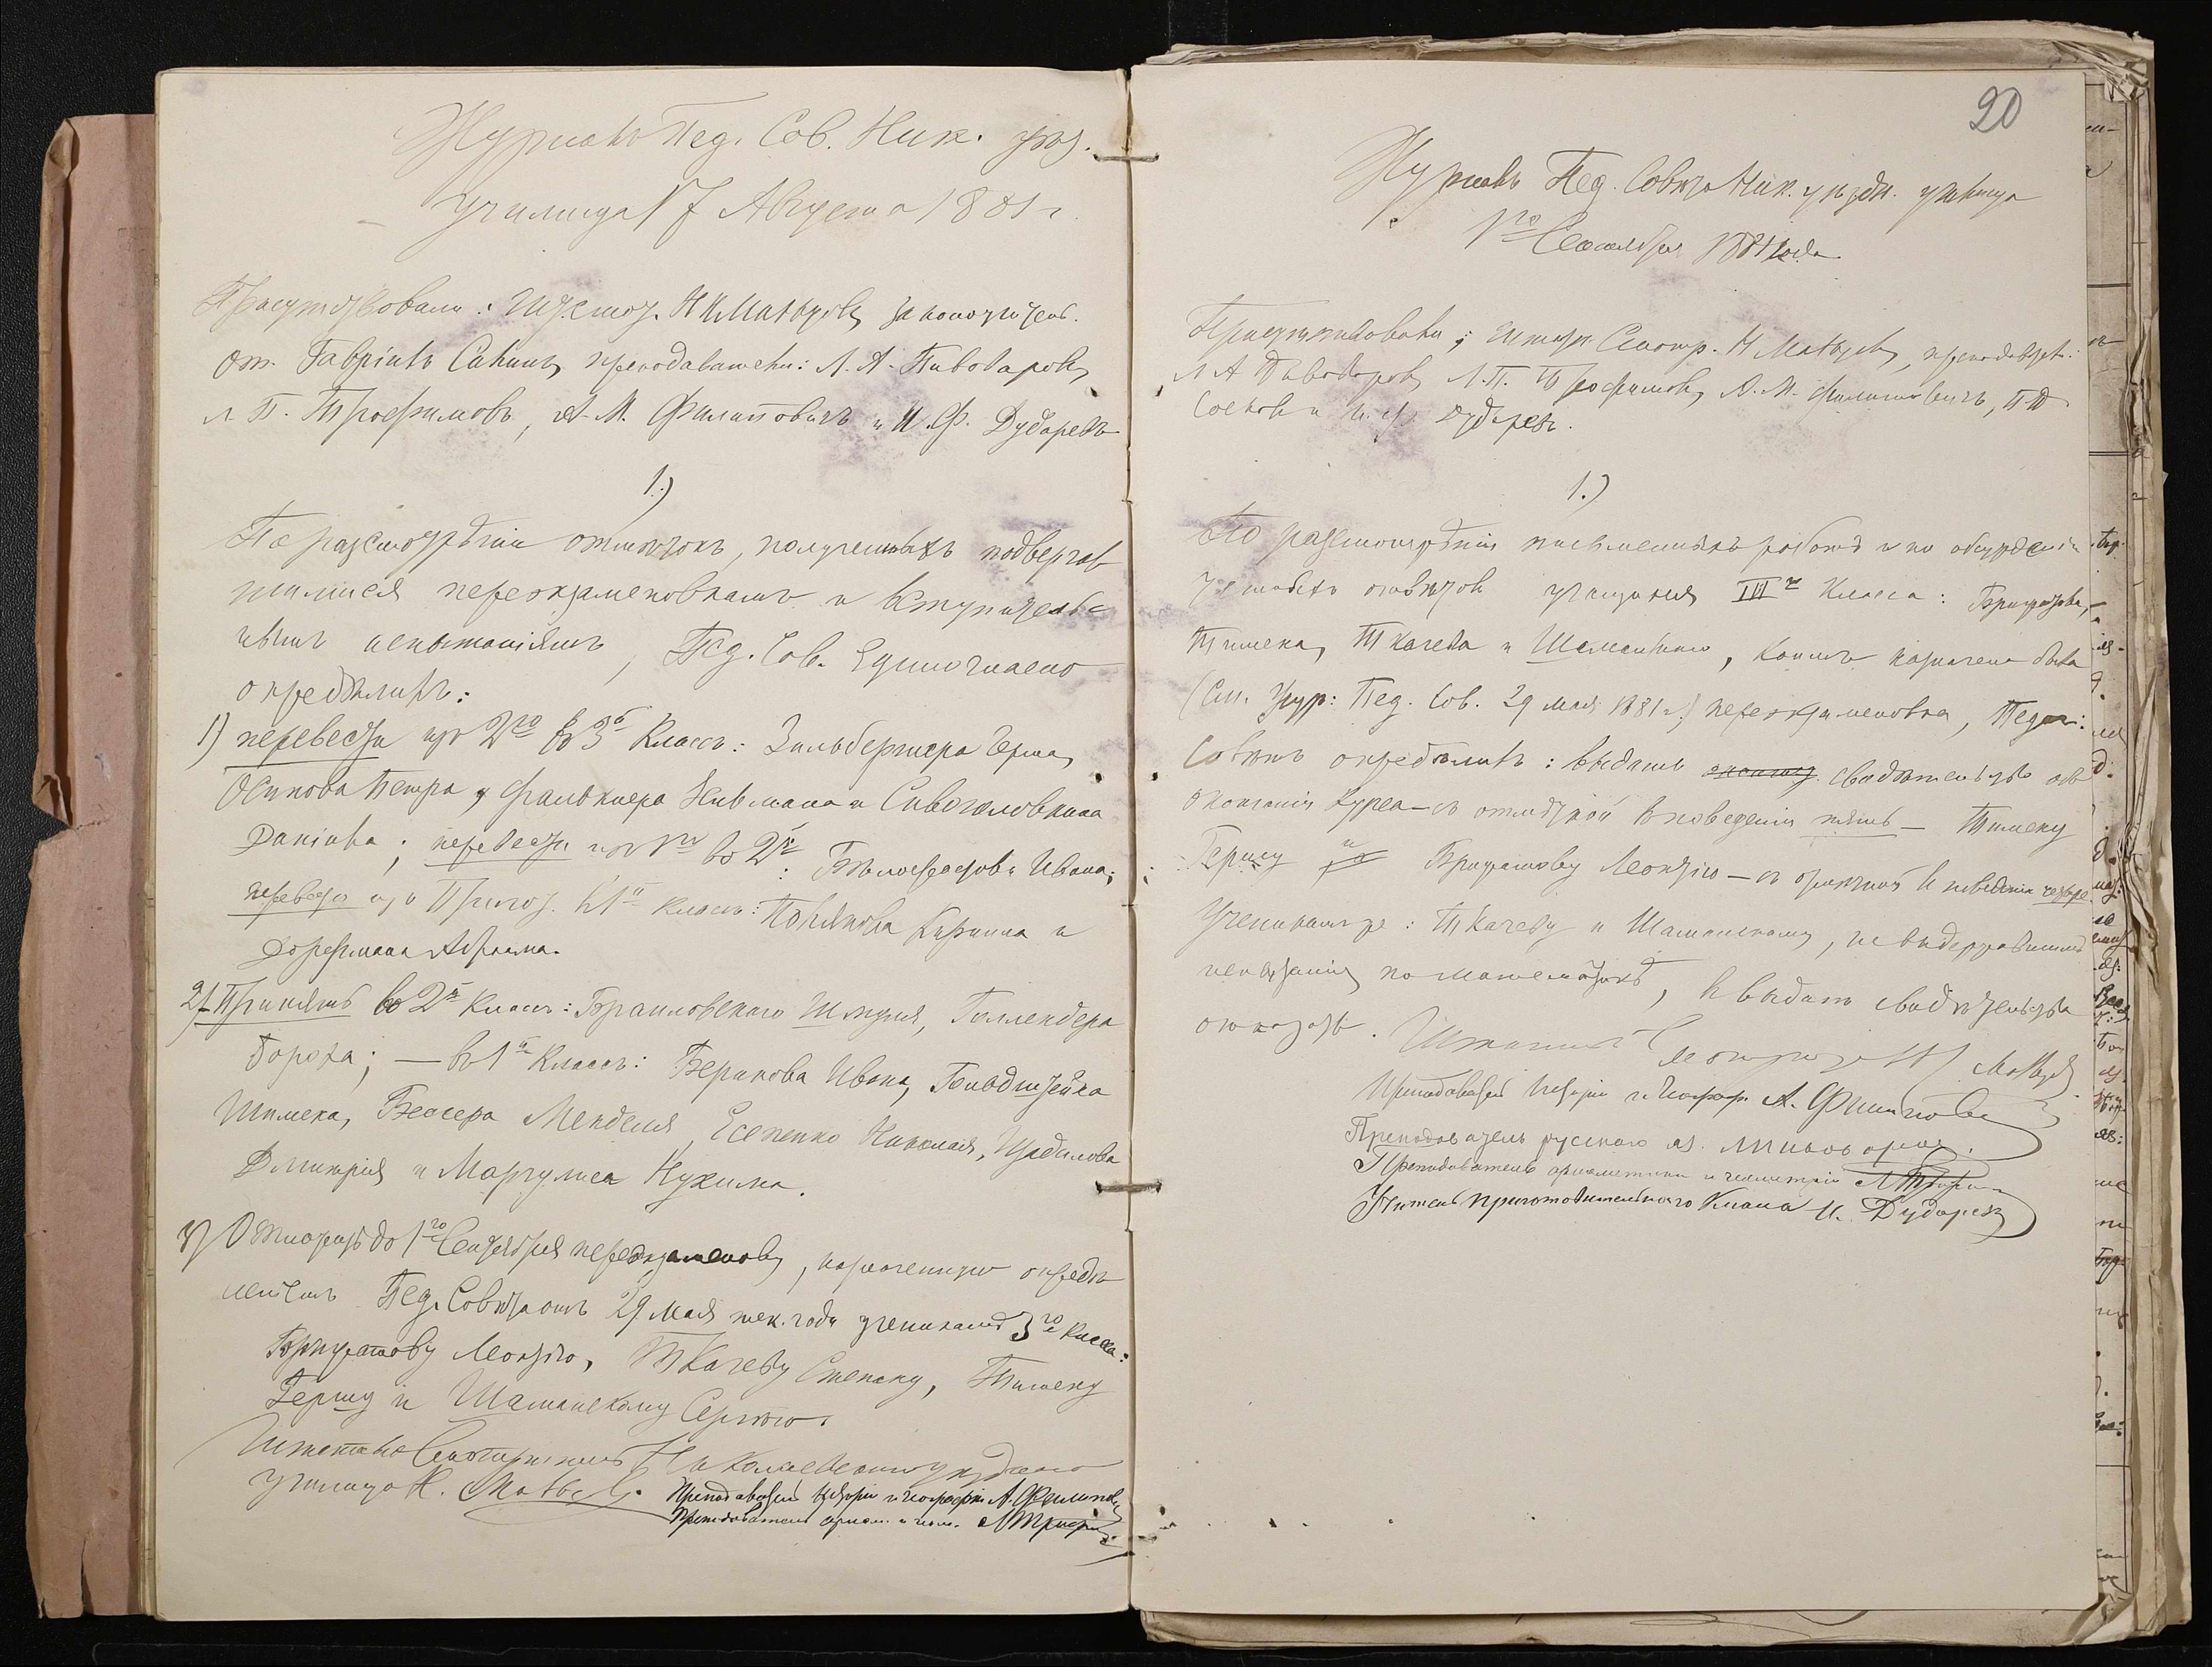 Журналъ Пед. Сов. Ник. уѣз.
Училища 17 Августа 1881 г.
Присутствовали: Шт. смот. Н Матвѣевъ, законоучител.
от. Гавріилъ Сахинъ, преподаватели: Л. А. Пивоваровъ,
Л П. Трофимовъ, А. М. Филипповичъ и И. Ф. Дударевъ
1.)
По разсмотрѣніи отмѣтокъ, полученныхъ подверга
шимися переэкзаменовкамъ и вступитель
нымъ испытаніямъ, Пед. Сов. Единогласно
опредѣлилъ:
1) перевести изъ 2го въ 3й Классъ: Зильбермера Герша,
Осипова Петра, Фальккера Нивмана и Сивоголовкина
Даніила; перевести изъ 1го во 2й: Бѣлоусова Ивана;
перевести изъ Пригот. въ 1й классъ: Полякова Кирилла и
Дорфмана Абрама.
2) Принять во 2й Классъ: Браиловскаго Шмуля, Геллендера
Бороха; — въ 1й Классъ: Берикова Ивана, Гольдштейна
Шимека, Бессера Менделя, Есепенко Николая, Цыбулова
Дмитрія и Маргулиса Нухима.
3) Отложить до 1го Сентября переэкзаменовку, назначенную опредѣ
леніемъ Пед. Совѣта отъ 29 мая тек. года ученикамъ 3го класса:
Леонтію, Ткачеву Степану, Тимену
Гершу и Шаманскому Сергѣю.
Штатный Смотритель Николаевскаго уѣзднаго
училища Н. Матвѣевъ. Преподаватель исторіи и географіи А. Филиппов
Преподаватель ариѳм. и геом. Л Трофим
20
Журналъ Пед. Совѣта Ник. уѣздн. училища
1го Сентября 1881 года
Присутствовали; Штатн. Смотр. Н Матвѣевъ, преподават.:
Л А Пивоваровъ, Л. П. Трофимовъ, А. М. Филипповичъ, П. Ѳ
и И. Ф. Дударевъ.
1.)
По разсмотрѣніи письменныхъ работъ и по обсужденіи
устныхъ отвѣтовъ учащихся IIIго Класса:
Тимена, Ткачева и Шаманскаго, коимъ назначена была
(См. Жур: Пед. Сов. 29 мая 1881 г.) переэкзаменовка, Педаг:
Совѣтъ опредѣлилъ: выдать свидѣтельство объ
окончаніи курса — съ отмѣткой въ поведеніи пять — Тимену
Гершу и Леонтію — съ отмѣткой въ поведеніи четыре.
Ученикамъ же: Ткачеву и Шаманскому, не выдержавшимъ
испытанія по математикѣ, въ выдачѣ свидѣтельства
отказать. Штатный Смотритель Н Матвѣевъ
Преподаватель исторіи и географ. А. Филиппов
Преподаватель русскаго яз. Л Пивоваров.
Преподаватель ариѳметики и геометріи Л Трофим
Учитель приготовительнаго Класса И. Дударевъ